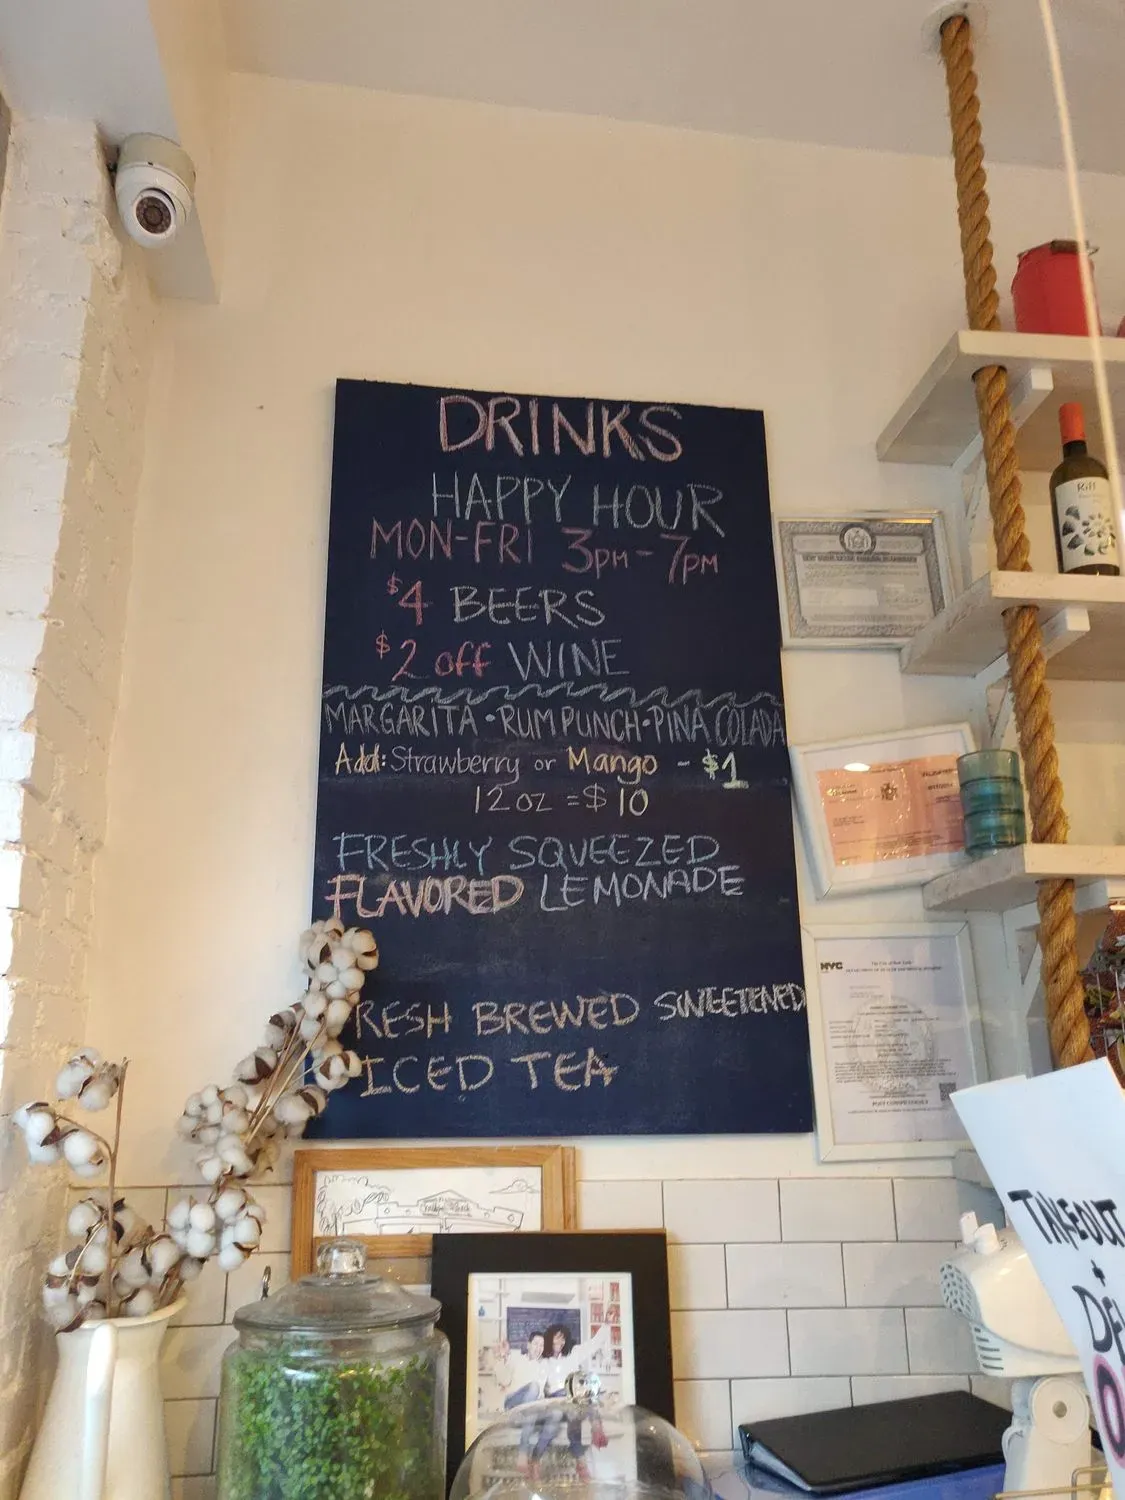 DRINKS
HAPPY HOUR
MON-FRI 3PM-7PM
$4 BEERS
$2 off WINE
MARGARITA • RUM PUNCH • PINA COLADA
Add: Strawberry or Mango - $1
12 oz = $10
FRESHLY SQUEEZED
FLAVORED LEMONADE
RESH BREWED SWEETENED
ICED TEA
Riff
NYC
TAKEOUT
+